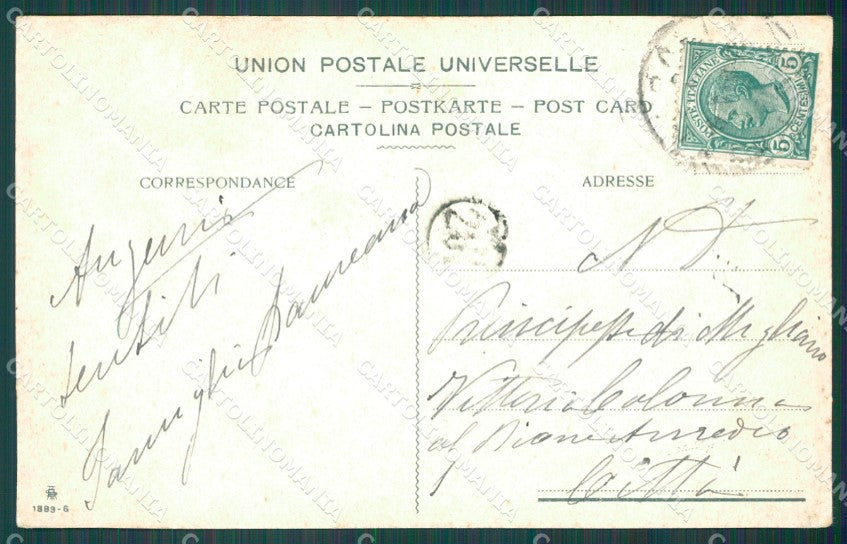 UNION POSTALE UNIVERSELLE
CARTE POSTALE – POSTKARTE – POST CARD
CARTOLINA POSTALE
POSTE ITALIANE
5 CENTESIMI 5
CORRESPONDANCE
Auguri
sentiti
Famiglia Laureana
1883-6
ADRESSE
N
Principessa di Migliano
Vittoria Colonna
al Rione Amedeo
Città
CARTOLINOMANIA